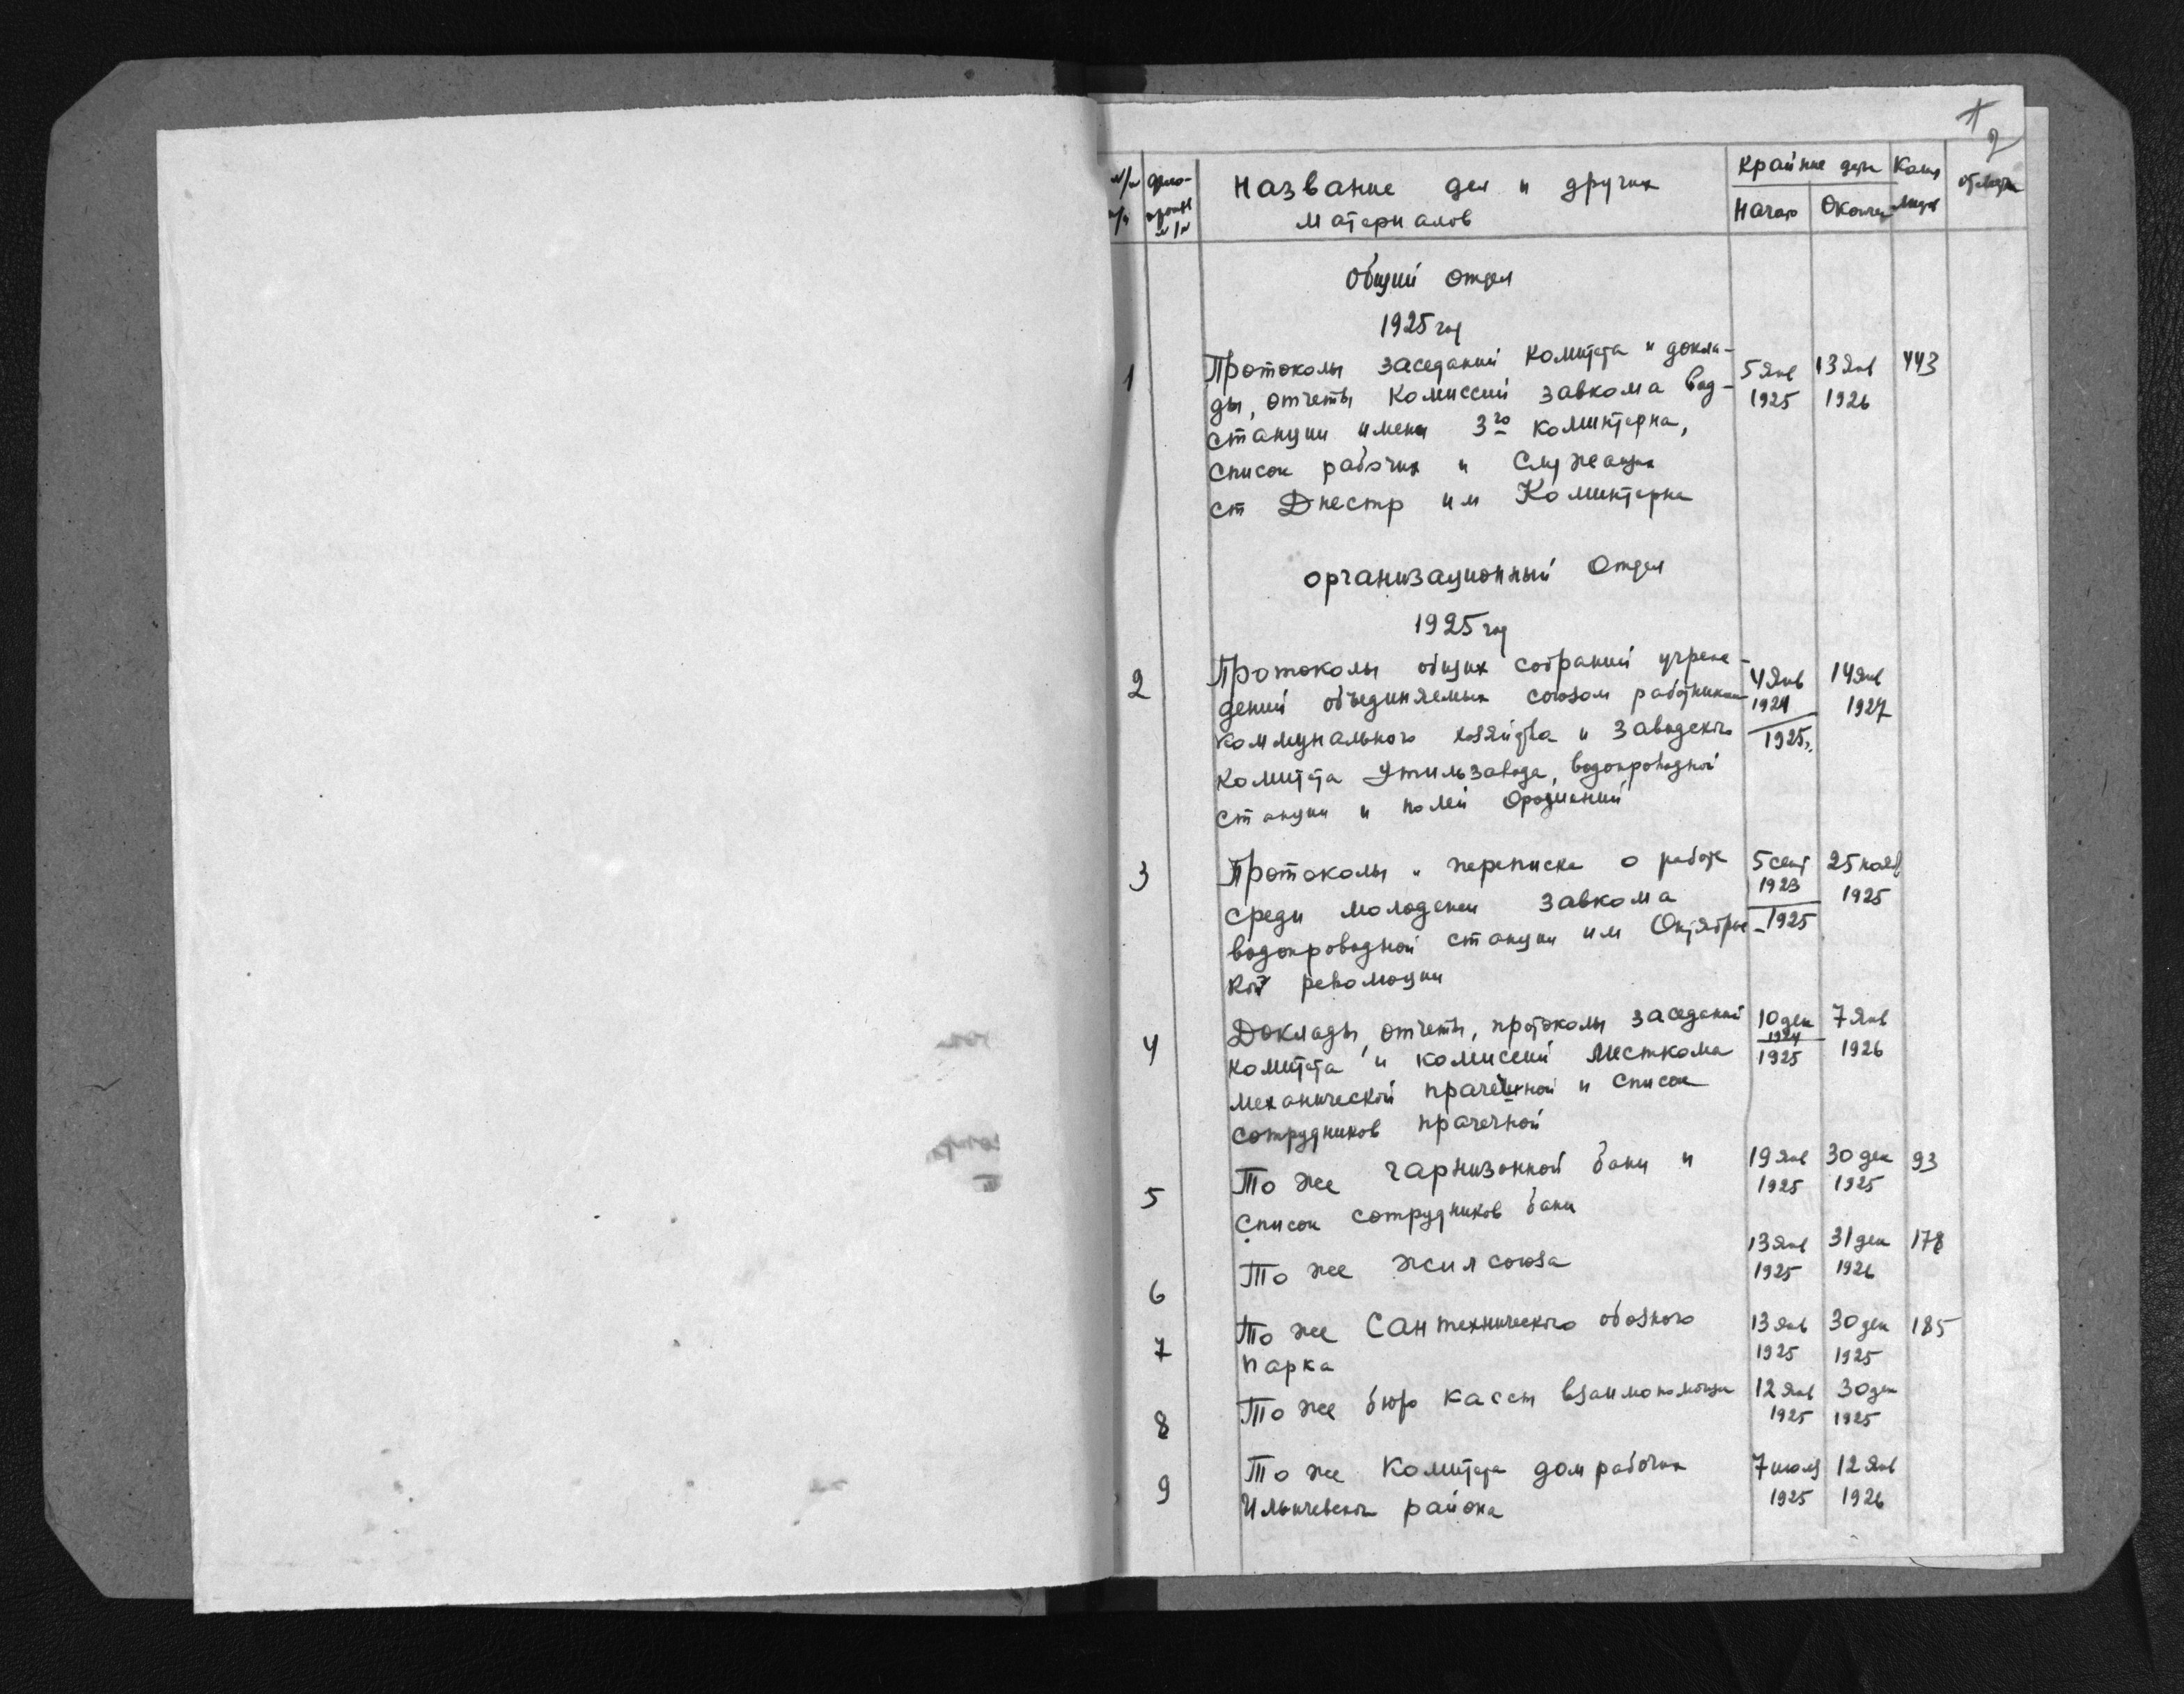 2
№/№ п/п
Название дел и других Крайние даты Колич
материалов Начало Окончан листов
Общий отдел
1925 год
1 Протоколы заседаний комитета и докла- 5 янв 13 янв 443
ды, отчеты комиссий завкома вод- 1925 1926
станции имени 3го коминтерна,
список рабочих и служащих
ст Днестр им Коминтерна
Организационный отдел
1925 год
2 Протоколы общих собраний учреж- 4 янв 14 янв
дений объединяемых союзом работников 1924 1927
коммунального хозяйства и заводского 1925
комитета Утильзавода, водопроводной
станции и полей орошений
3 Протоколы и переписка о работе 5 сент 25 нояб
среди молодежи завкома 1923 1925
водопроводной станции им Октябрьс- 1925
кой революции
4 Доклады, отчеты, протоколы заседаний 10 дек 7 янв
комитета и комиссий месткома 1924 1925 1926
механической прачечной и список
сотрудников прачечной
5 То же гарнизонной бани и 19 янв 30 дек 93
список сотрудников бани 1925 1925
6 То же жилсоюза 13 янв 31 дек 178
1925 1926
7 То же Сантехнического обозного 13 янв 30 дек 185
парка 1925 1925
8 То же бюро кассы взаимопомощи 12 янв 30 дек
1925 1925
9 То же комитета домрабочих 7 июля 12 янв
Ильичевского района 1925 1926